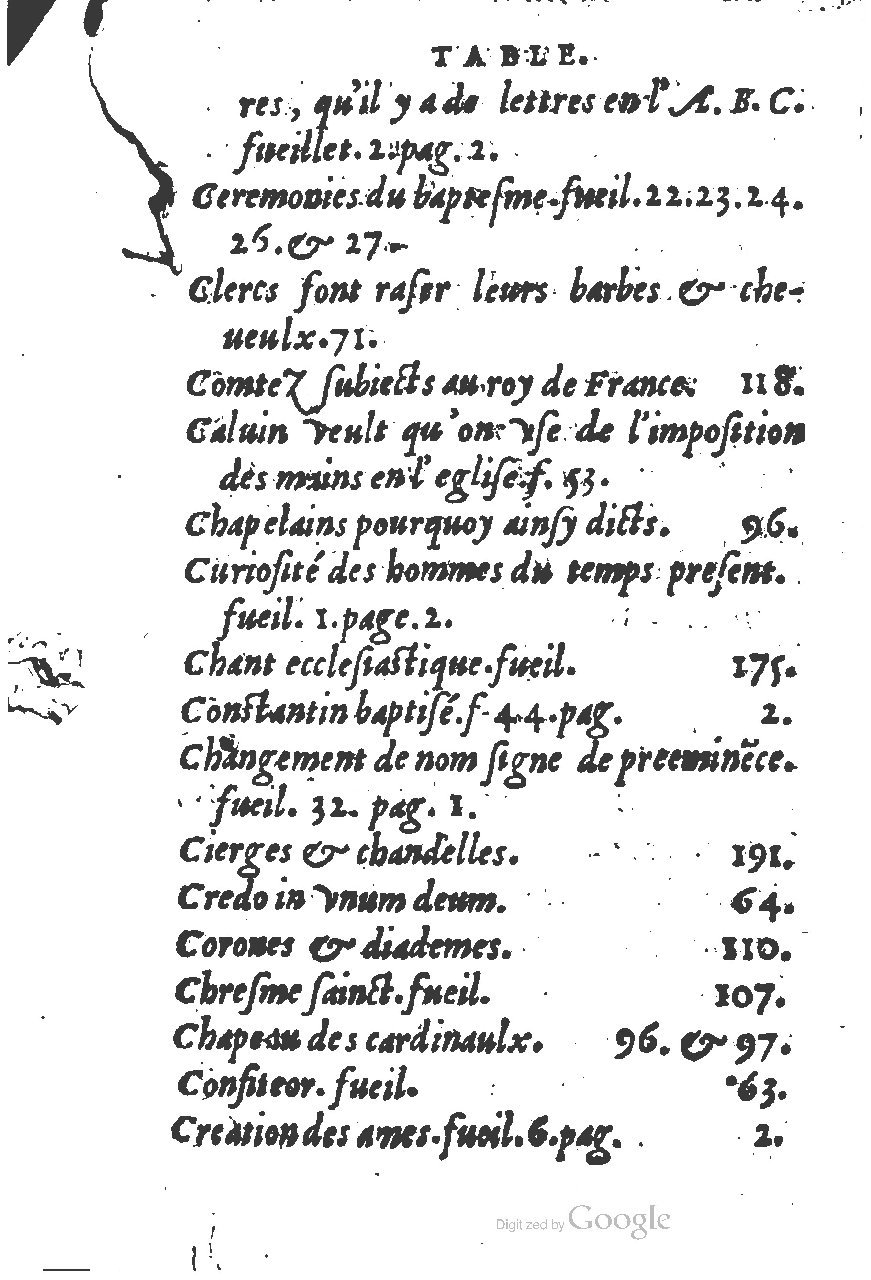 TABLE.
res, qu'il y a de lettres en l'A. B. C.
fueillet. 2. pag. 2.
Ceremonies du bapteſme. fueil. 22. 23. 24.
26. & 27.
Clercs font raſer leurs barbes & che-
ueulx. 71.
Comtez ſubiects au roy de France. 118.
Caluin veult qu'on vſe de l'impoſition
des mains en l'egliſe. f. 53.
Chapelains pourquoy ainſy dicts. 96.
Curioſité des hommes du temps preſent.
fueil. 1. page. 2.
Chant eccleſiaſtique. fueil. 175.
Conſtantin baptiſé. f. 44. pag. 2.
Changement de nom ſigne de preeminẽce.
fueil. 32. pag. 1.
Cierges & chandelles. 191.
Credo in vnum deum. 64.
Corones & diademes. 110.
Chreſme ſainct. fueil. 107.
Chapeau des cardinaulx. 96. & 97.
Confiteor. fueil. 63.
Creation des ames. fueil. 6. pag. 2.
Digitized by Google